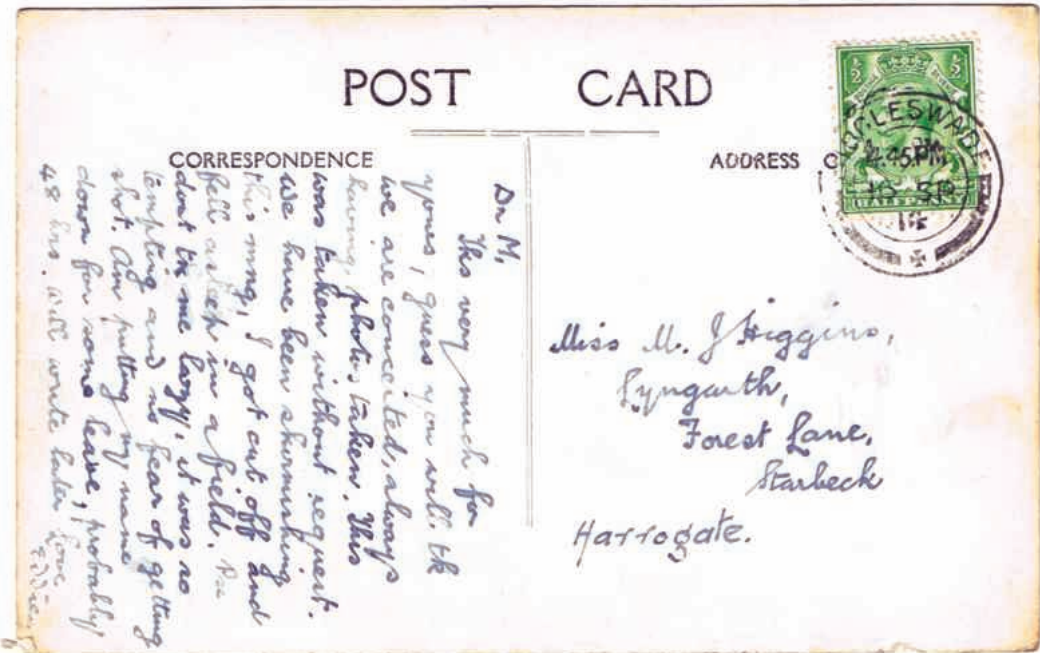 POST CARD
CORRESPONDENCE
ADDRESS O
½ ½
HALFPENNY
GGLESWADE
4.45 PM
10 SP
14
Dr M,
Ths very much for
yours, guess you will thk
we are conceited, always
having photos taken. This
was taken without request.
We have been skirmishing
this mng, I got cut off and
fell asleep in a field.
dont thk me lazy, it was so
tempting and no fear of getting
shot. Am putting my name
down for some leave, probably
48 hrs. Will write later love
Eddie
Miss M. J Higgins,
Lyngarth,
Forest Lane,
Starbeck
Harrogate.